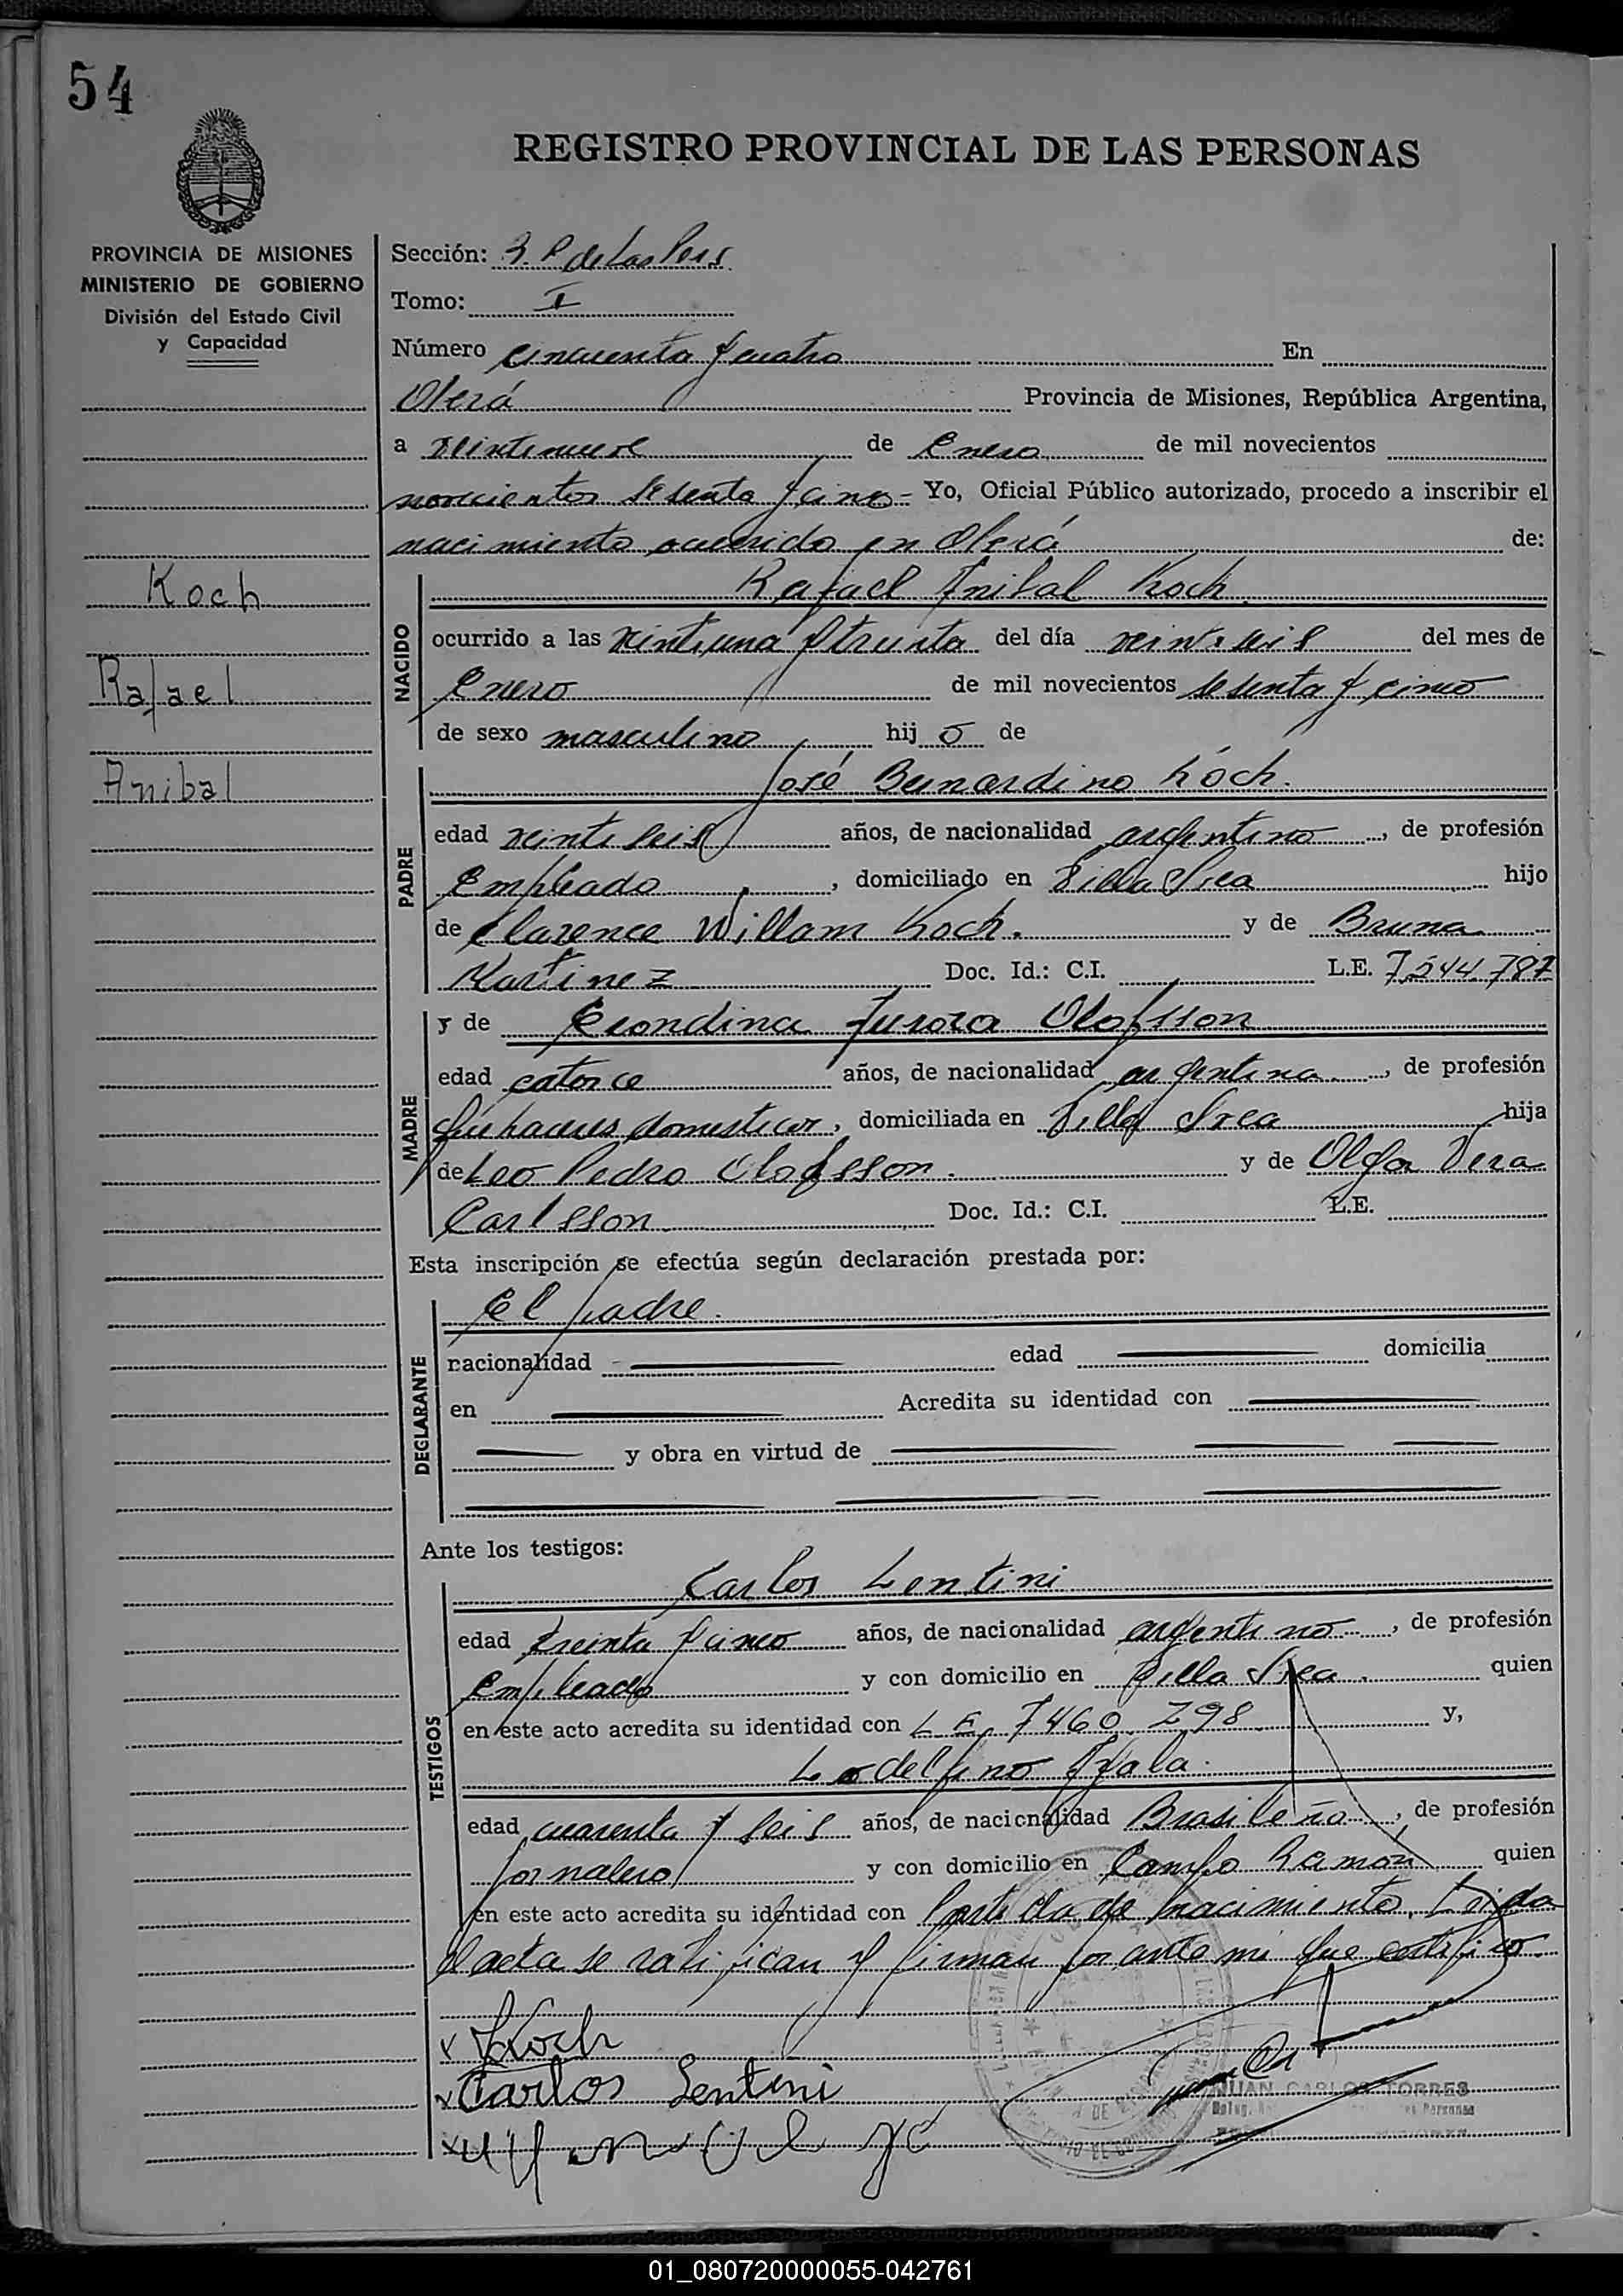 54
REGISTRO PROVINCIAL DE LAS PERSONAS
PROVINCIA DE MISIONES
MINISTERIO DE GOBIERNO
División del Estado Civil
y Capacidad
Koch
Rafael
Anibal
Sección: 3. R de Las Pers.
Tomo: I
Número cincuenta y cuatro En
Oberá Provincia de Misiones, República Argentina,
a veintinueve de Enero de mil novecientos
novecientos sesenta y cinco = Yo, Oficial Público autorizado, procedo a inscribir el
nacimiento ocurrido en Oberá de:
NACIDO
Rafael Anibal Koch
ocurrido a las veintiuna y treinta del día veintiseis del mes de
Enero de mil novecientos sesenta y cinco
de sexo masculino hij o de
PADRE
José Bernardino Koch.
edad veintiseis años, de nacionalidad argentino, de profesión
Empleado, domiciliado en Villa Svea hijo
de Clarence Willam Koch. y de Bruna
Martinez Doc. Id.: C.I. L.E. 7.544.787
MADRE
y de Erondina Aurora Olofsson
edad catorce años, de nacionalidad argentina, de profesión
quehaceres domesticos, domiciliada en Villa Svea hija
de Leo Pedro Olofsson. y de Olga Vera
Carlsson Doc. Id.: C.I. L.E.
Esta inscripción se efectúa según declaración prestada por:
DECLARANTE
El padre.
nacionalidad edad domicilia
en Acredita su identidad con
y obra en virtud de
Ante los testigos:
TESTIGOS
Carlos Lentini
edad treinta y cinco años, de nacionalidad argentino, de profesión
Empleado y con domicilio en Villa Svea. quien
en este acto acredita su identidad con L E. 7460.298 y,
Lodelfino Ayala.
edad cuarenta y seis años, de nacionalidad Brasileño, de profesión
jornalero y con domicilio en Campo Ramón quien
en este acto acredita su identidad con Partida de nacimiento. Leida
el acta se ratifican y firman por ante mi que certifico.
x Koch
x Carlos Lentini
JUAN CARLOS TORRES
01_080720000055-042761